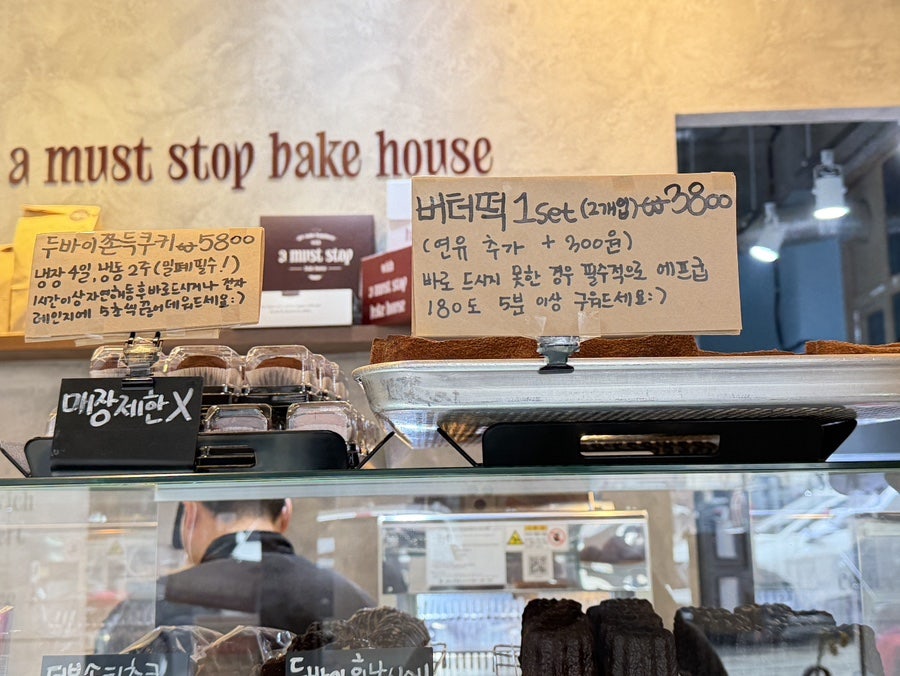 a must stop bake house
버터떡 1set (2개입) ₩3800
(연유 추가 + 300원)
바로 드시지 못한 경우 필수적으로 에프급
180도 5분 이상 구워드세요:)
두바이쫀득쿠키 ₩5800
냉장 4일, 냉동 2주 (밀폐필수!)
1시간이상 자연해동후 바로드시거나 전자
레인지에 5초씩 끊어데워드세요:)
a must stop
a must stop
bake house
매장제한X